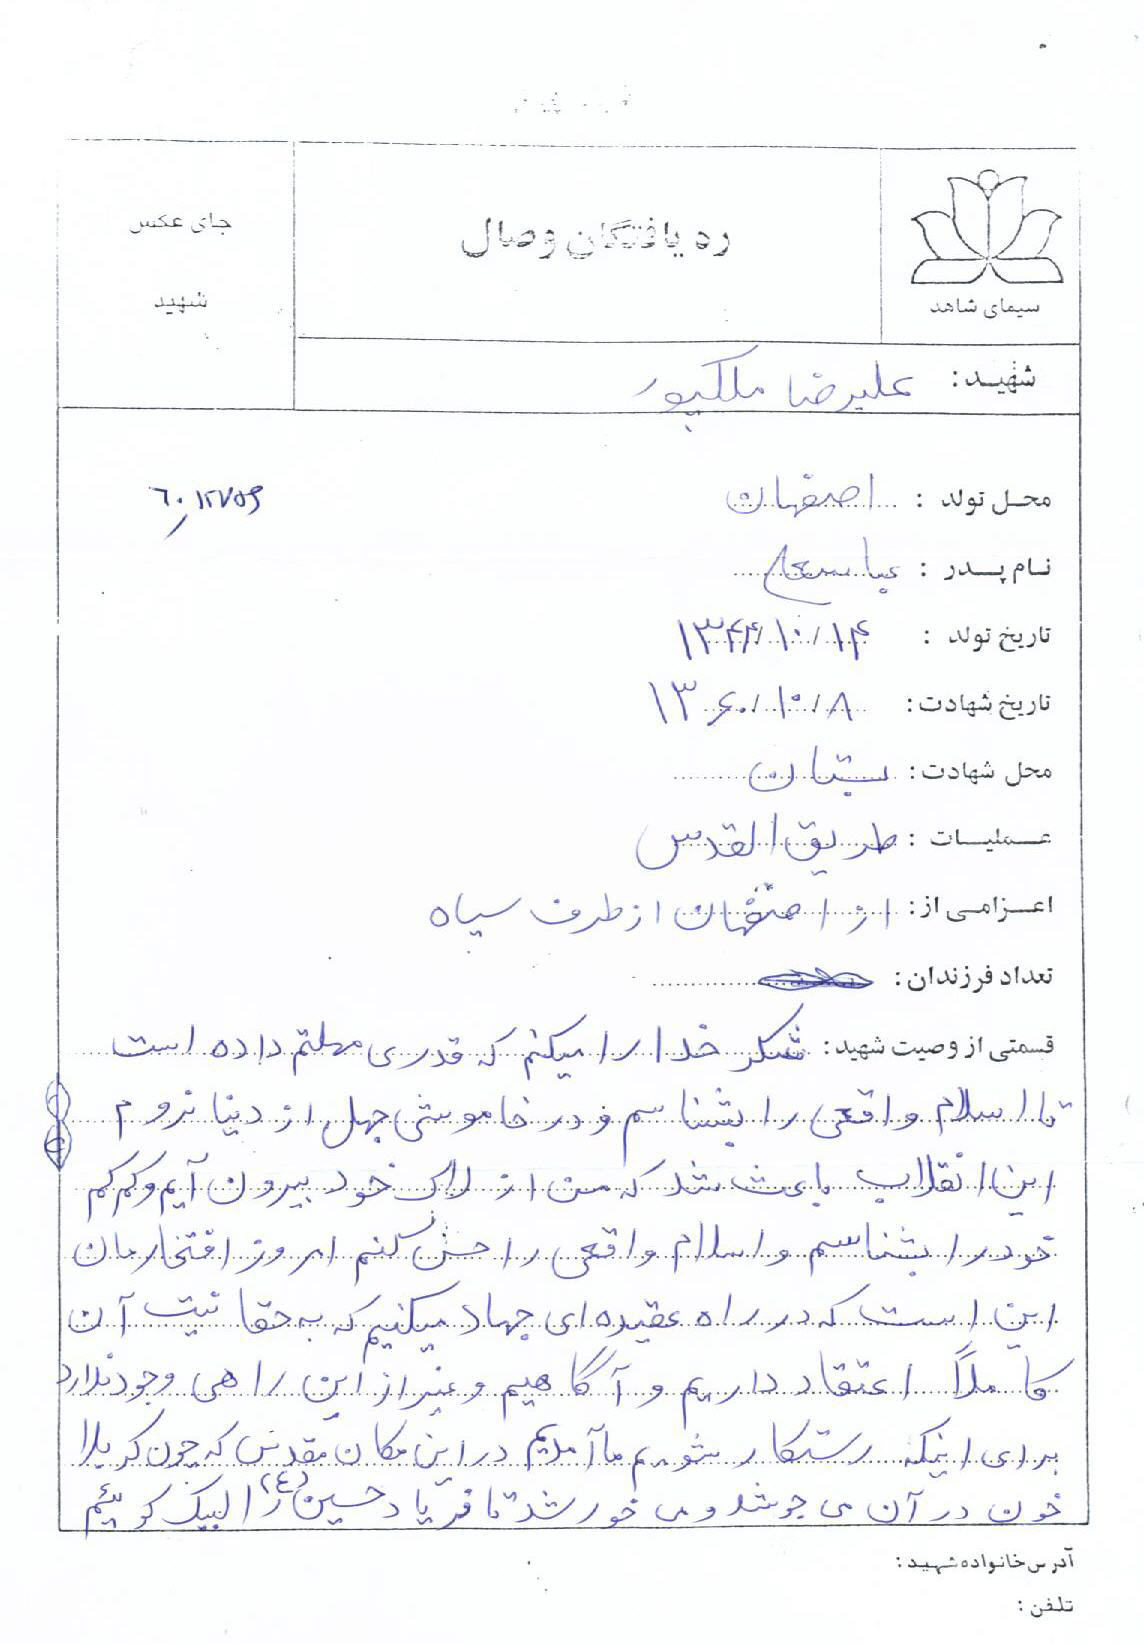 ره یافتگان وصال
سیمای شاهد
جای عکس
شهید
شهید: علیرضا ملکپور
محل تولد : اصفهان
نام پدر : عباسعلی
تاریخ تولد : ۱۳۴۴/۱۰/۱۴
تاریخ شهادت: ۱۳۶۰/۱۰/۸
محل شهادت: بستان
عملیات : طریق القدس
اعزامی از: از اصفهان از طرف سپاه
تعداد فرزندان:
قسمتی از وصیت شهید: شکر خدا را میکنم که قدری مهلتم داده است
تا اسلام واقعی را بشناسم و در خاموشی جهل از دنیا نروم
این انقلاب باعث شد که من از لاک خود بیرون آیم و کم کم
خود را بشناسم و اسلام واقعی را حس کنم امروز افتخارمان
این است که در راه عقیده ای جهاد میکنیم که به حقانیت آن
کاملاً اعتقاد داریم و آگاهیم و غیر از این راهی وجود ندارد
برای اینکه رستگار شویم ما آمدیم در این مکان مقدس که چون کربلا
خون در آن می جوشد و می خورشد تا فریاد حسین (ع) را لبیک گوئیم
آدرس خانواده شهید:
تلفن: